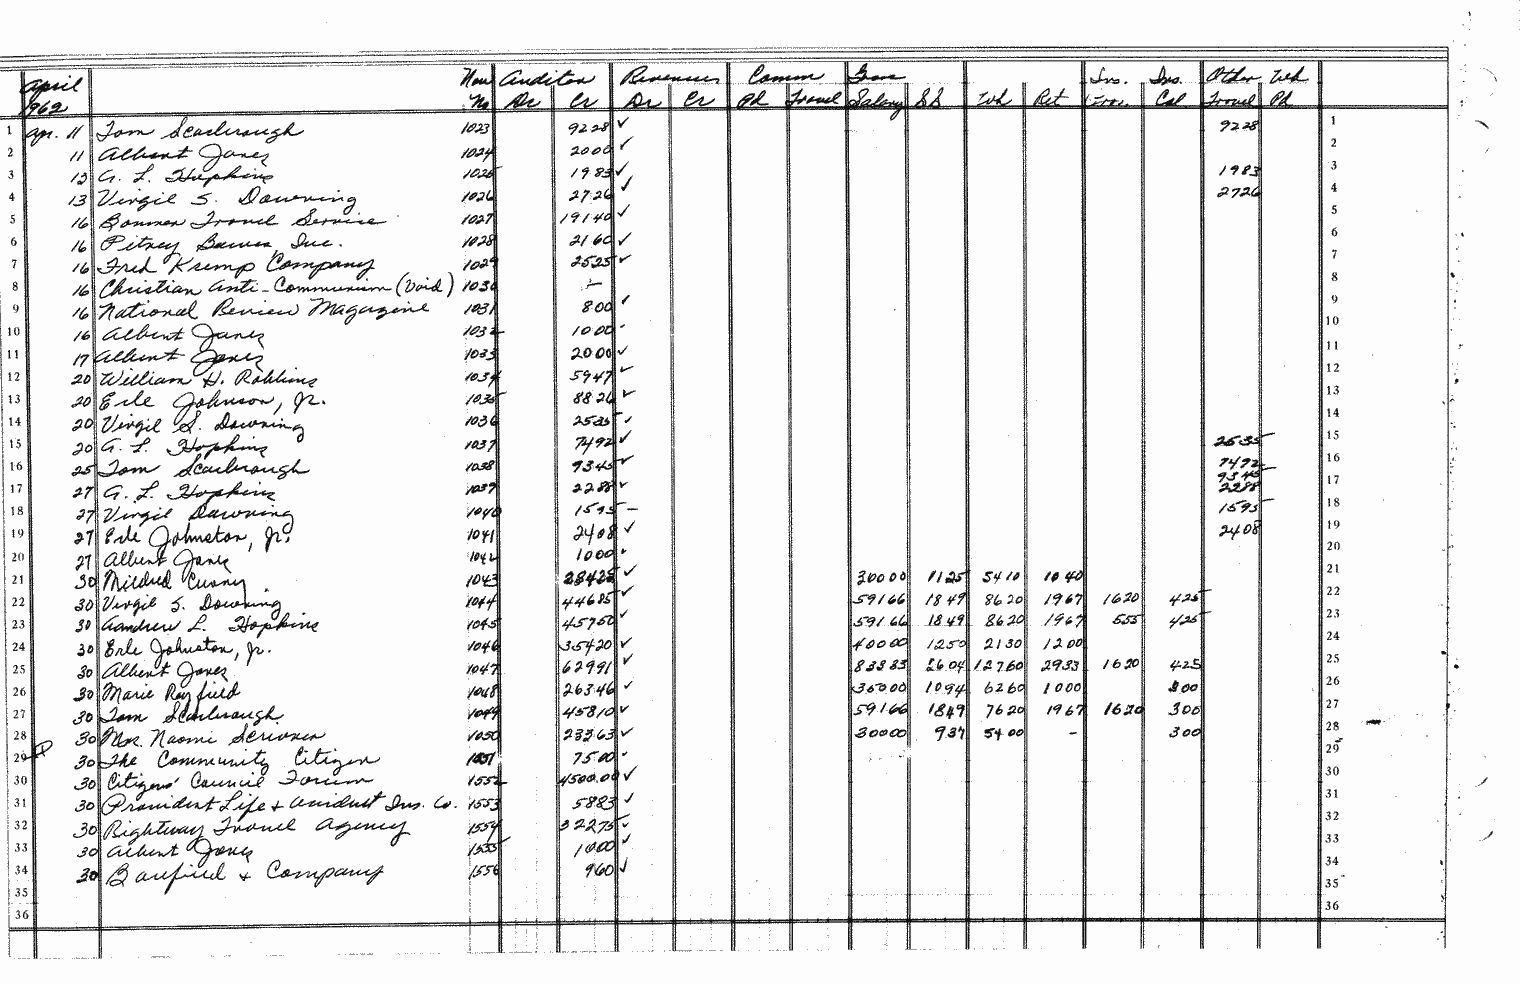 April 1962 No Auditor Revenues Comm Gross Ins. Ins. Other Wh
No Dr Cr Dr Cr Pd Travel Salary SS Wh Ret Trav. Cal Travel Pd
1 Apr. 11 Tom Scarbrough 1023 9228 ✓ 9228 1
2 11 Albert Jones 1024 2000 ✓ 2
3 12 A. L. Hopkins 1025 1983 ✓ 1983 3
4 13 Virgil S. Downing 1026 2726 ✓ 2726 4
5 16 Travel Service 1027 19140 ✓ 5
6 16 Pitney Bowes, Inc. 1028 2160 ✓ 6
7 16 Fred Kremp Company 1029 2525 ✓ 7
8 16 Christian Anti-Communism (Void) 1030 — 8
9 16 National Review Magazine 1031 800 ✓ 9
10 16 Albert Jones 1032 1000 10
11 17 Albert Jones 1033 2000 ✓ 11
12 20 William H. Robbins 1034 5947 ✓ 12
13 20 Erle Johnson, Jr. 1035 8826 ✓ 13
14 20 Virgil S. Downing 1036 2535 ✓ 14
15 20 A. L. Hopkins 1037 7492 ✓ 2535 15
16 25 Tom Scarbrough 1038 9345 ✓ 7492 16
17 27 A. L. Hopkins 1039 2288 ✓ 9345 2288 17
18 27 Virgil Downing 1040 1595 — 1595 18
19 27 Erle Johnston, Jr. 1041 2408 ✓ 2408 19
20 27 Albert Jones 1042 1000 20
21 30 Mildred Curry 1043 28425 ✓ 1125 5410 1040 21
22 30 Virgil S. Downing 1044 44685 ✓ 59166 1849 8620 1967 1620 425 22
23 30 Aandrew L. Hopkins 1045 45750 ✓ 59166 1849 8620 1967 555 425 23
24 30 Erle Johnston, Jr. 1046 35420 ✓ 40000 1250 2130 1200 24
25 30 Albert Jones 1047 62991 ✓ 83333 2604 12760 2933 1620 425 25
26 30 Marie Rayfield 1048 26346 ✓ 35000 1094 6260 1000 300 26
27 30 Tom Scarbrough 1049 45810 ✓ 59166 1849 7620 1967 1620 300 27
28 30 Mrs. Naomi Scrivner 1050 23363 ✓ 30000 937 5400 - 300 28
29 30 The Community Citizen 1051 7500 29
30 30 Citizens' Council Forum 1552 4500.00 ✓ 30
31 30 Provident Life & Accident Ins. Co. 1553 5883 ✓ 31
32 30 Rightway Travel Agency 1554 32275 ✓ 32
33 30 Albert Jones 1555 1000 ✓ 33
34 30 Banfield & Company 1556 960 ✓ 34
35 35
36 36